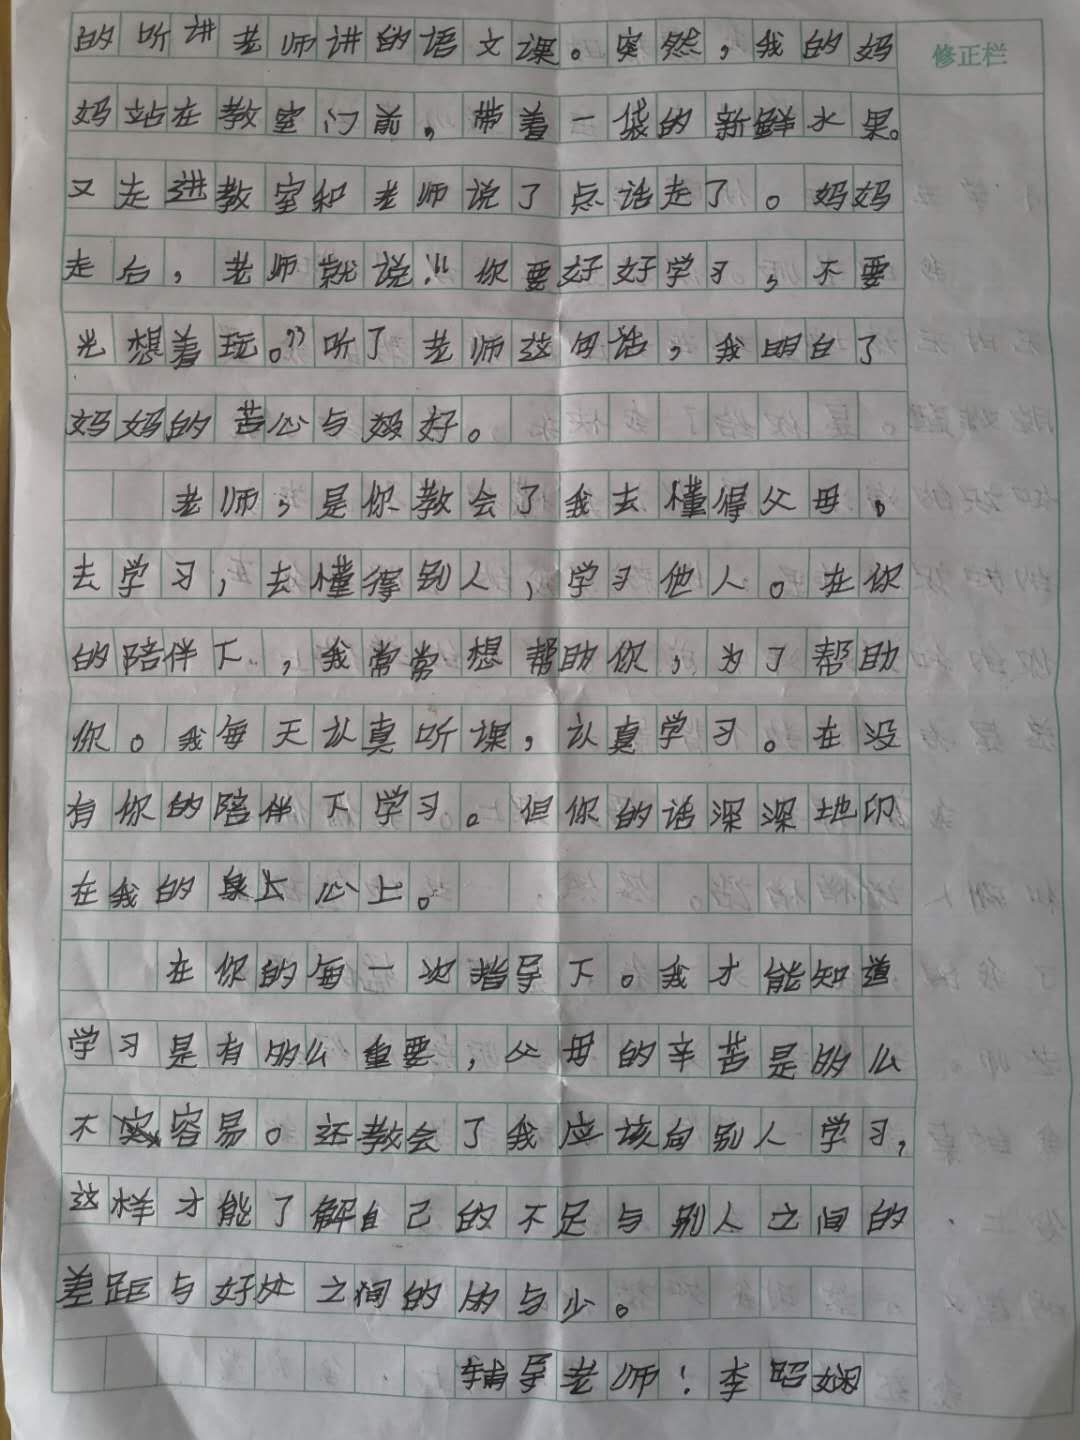 的听讲老师讲的语文课。突然，我的妈
修正栏
妈站在教室门前，带着一袋的新鲜水果。
又走进教室和老师说了点话走了。妈妈
走后，老师就说:“你要好好学习，不要
光想着玩。”听了老师这句话，我明白了
妈妈的苦心与好。
老师，是你教会了我去懂得父母。
去学习，去懂得别人，学习他人。在你
的陪伴下，我常常想帮助你，为了帮助
你。我每天认真听课，认真学习。在没
有你的陪伴下学习。但你的话深深地印
在我的身上心上。
在你的每一次指导下。我才能知道
学习是有多么重要，父母的辛苦是多么
不容易。还教会了我应该向别人学习，
这样才能了解自己的不足与别人之间的
差距与好处之间的多与少。
辅导老师：李昭娴